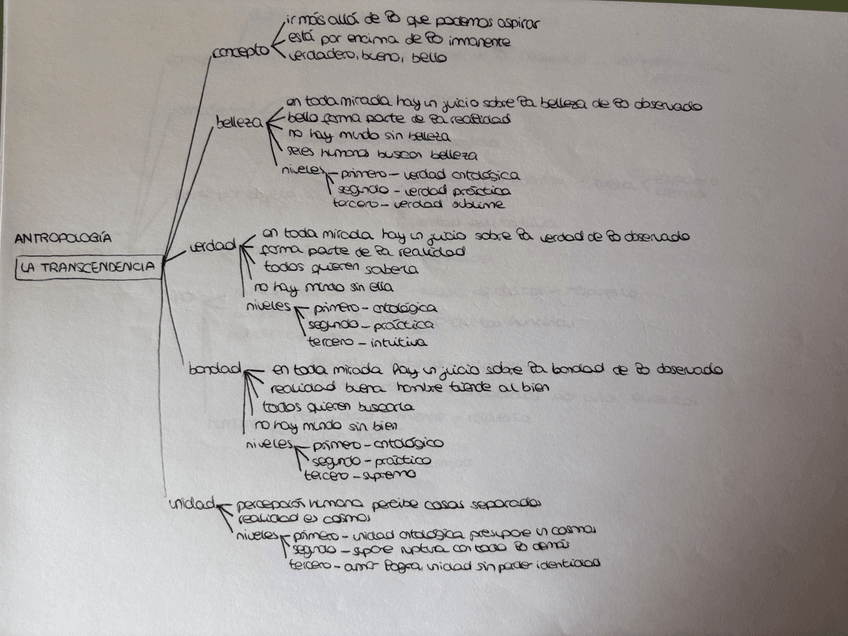 ir más allá de lo que podemos aspirar
concepto
está por encima de lo inmanente
verdadero, bueno, bello
en toda mirada hay un juicio sobre la belleza de lo observado
belleza
bello forma parte de la realidad
no hay mundo sin belleza
seres humanos buscan belleza
niveles
primero - verdad ontológica
segundo - verdad práctica
tercero - verdad sublime
ANTROPOLOGÍA
LA TRANSCENDENCIA
verdad
en toda mirada hay un juicio sobre la verdad de lo observado
forma parte de la realidad
todos quieren saberla
no hay mundo sin ella
niveles
primero - ontológica
segundo - práctica
tercero - intuitiva
bondad
en toda mirada hay un juicio sobre la bondad de lo observado
realidad buena hombre tiende al bien
todos quieren buscarla
no hay mundo sin bien
niveles
primero - ontológico
segundo - práctico
tercero - supremo
unidad
percepción humana percibe cosas separadas
realidad es cosmos
niveles
primero - unidad ontológica presupone un cosmos
segundo - supone ruptura con todo lo demás
tercero - amor logra unidad sin perder identidad